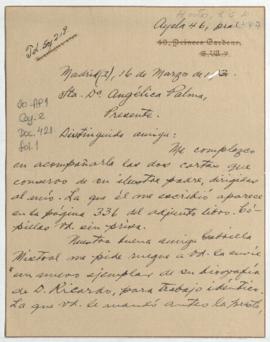 Ayala 46, pral
Tel. 59219
Madrid (2), 16 de Marzo de
Sta. Da. Angélica Palma,
Presente.
Distinguida amiga:
Me complazco
en acompañarle las dos cartas que
conservo de su ilustre padre, dirigidas
al mío. La que él me escribió aparece
en la página 336 del adjunto libro. Có-
pielas Vd. sin prisa.
Nuestra buena amiga Gabriela
Mistral me pide ruegue a vd. la envíe
un nuevo ejemplar de su biografía
de D. Ricardo, para trabajo idéntico.
La que vd. le mandó antes la prestó,
Caj. 2
Doc. 421
fol. 1